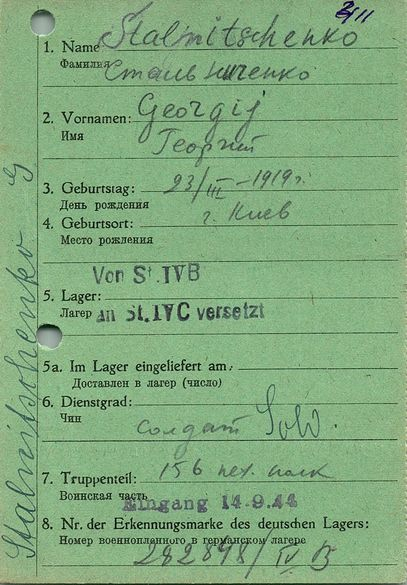 2/11
1. Name Stalnitschenko
Фамилия Стальниченко
2. Vornamen: Georgij
Имя Георгий
3. Geburtstag: 23/III-1919г.
День рождения
4. Geburtsort: г. Киев
Место рождения
Von St. IVB
5. Lager:
Лагерь an St. IVC versetzt
5a. Im Lager eingeliefert am:
Доставлен в лагер (число)
6. Dienstgrad:
Чин солдат Sold.
7. Truppenteil: 156 пех. полк
Воинская часть
Eingang 14.9.44
8. Nr. der Erkennungsmarke des deutschen Lagers:
Номер военнопленного в германском лагере
282898/IV B
Stalnitschenko G